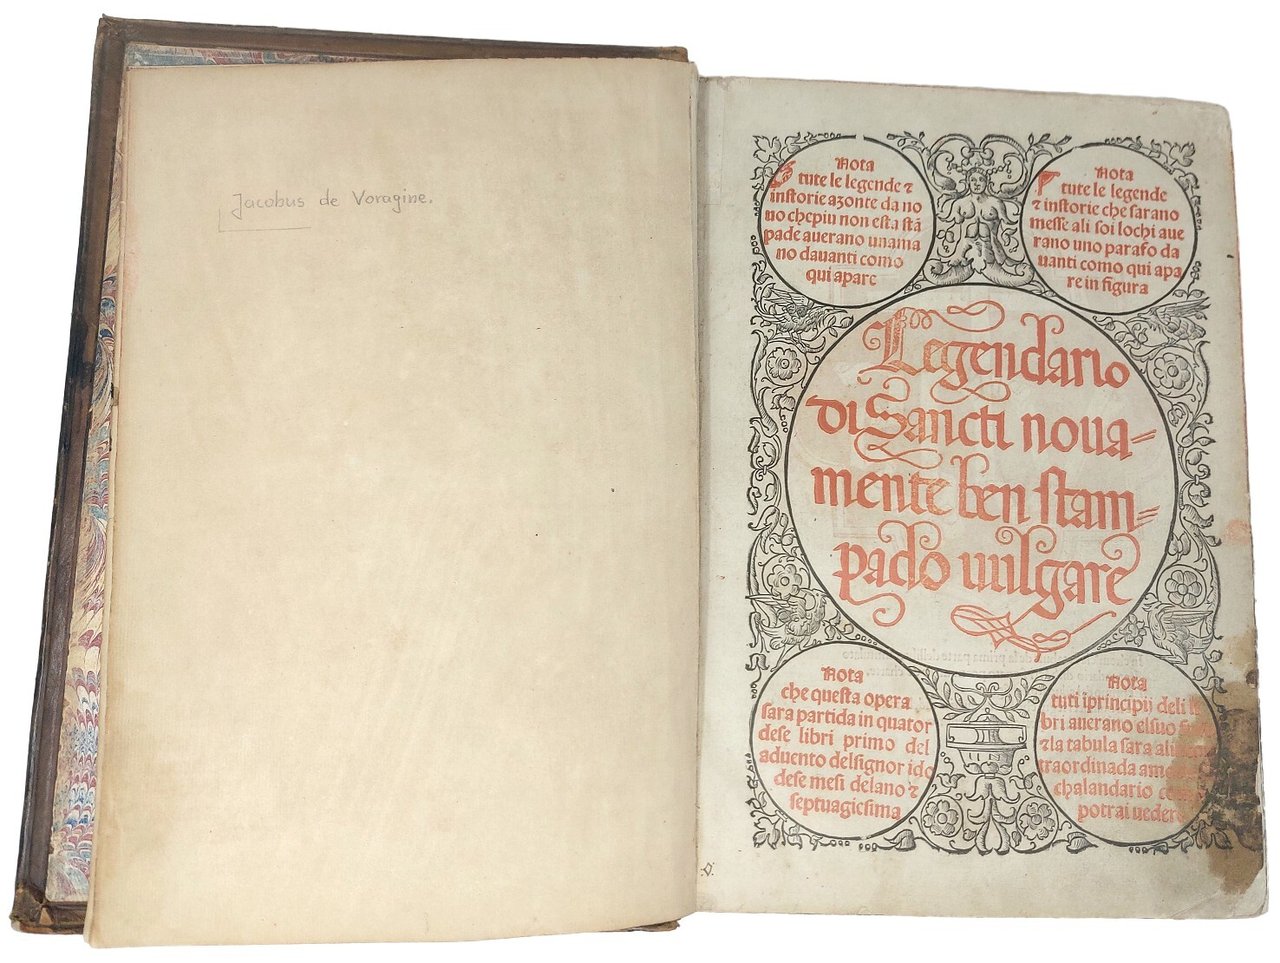 Jacobus de Voragine.
Nota
tute le legende ⁊
instorie azonte da no
no chepiu non esta stã
pade auerano unama
no dauanti como
qui apare
Nota
tute le legende
⁊ instorie che sarano
messe ali soi lochi aue
rano uno parafo da
uanti como qui apa
re in figura
Legendario
di Sancti noua=
mente ben stam=
pado uulgare
Nota
che questa opera
sara partida in quator
dese libri primo del
aduento delsignor ido
dese mesi delano ⁊
septuagesima
Nota
tuti ĩprincipij deli
bri auerano elsuo
⁊ la tabula sara
traordinada
chalandario
potrai uedere